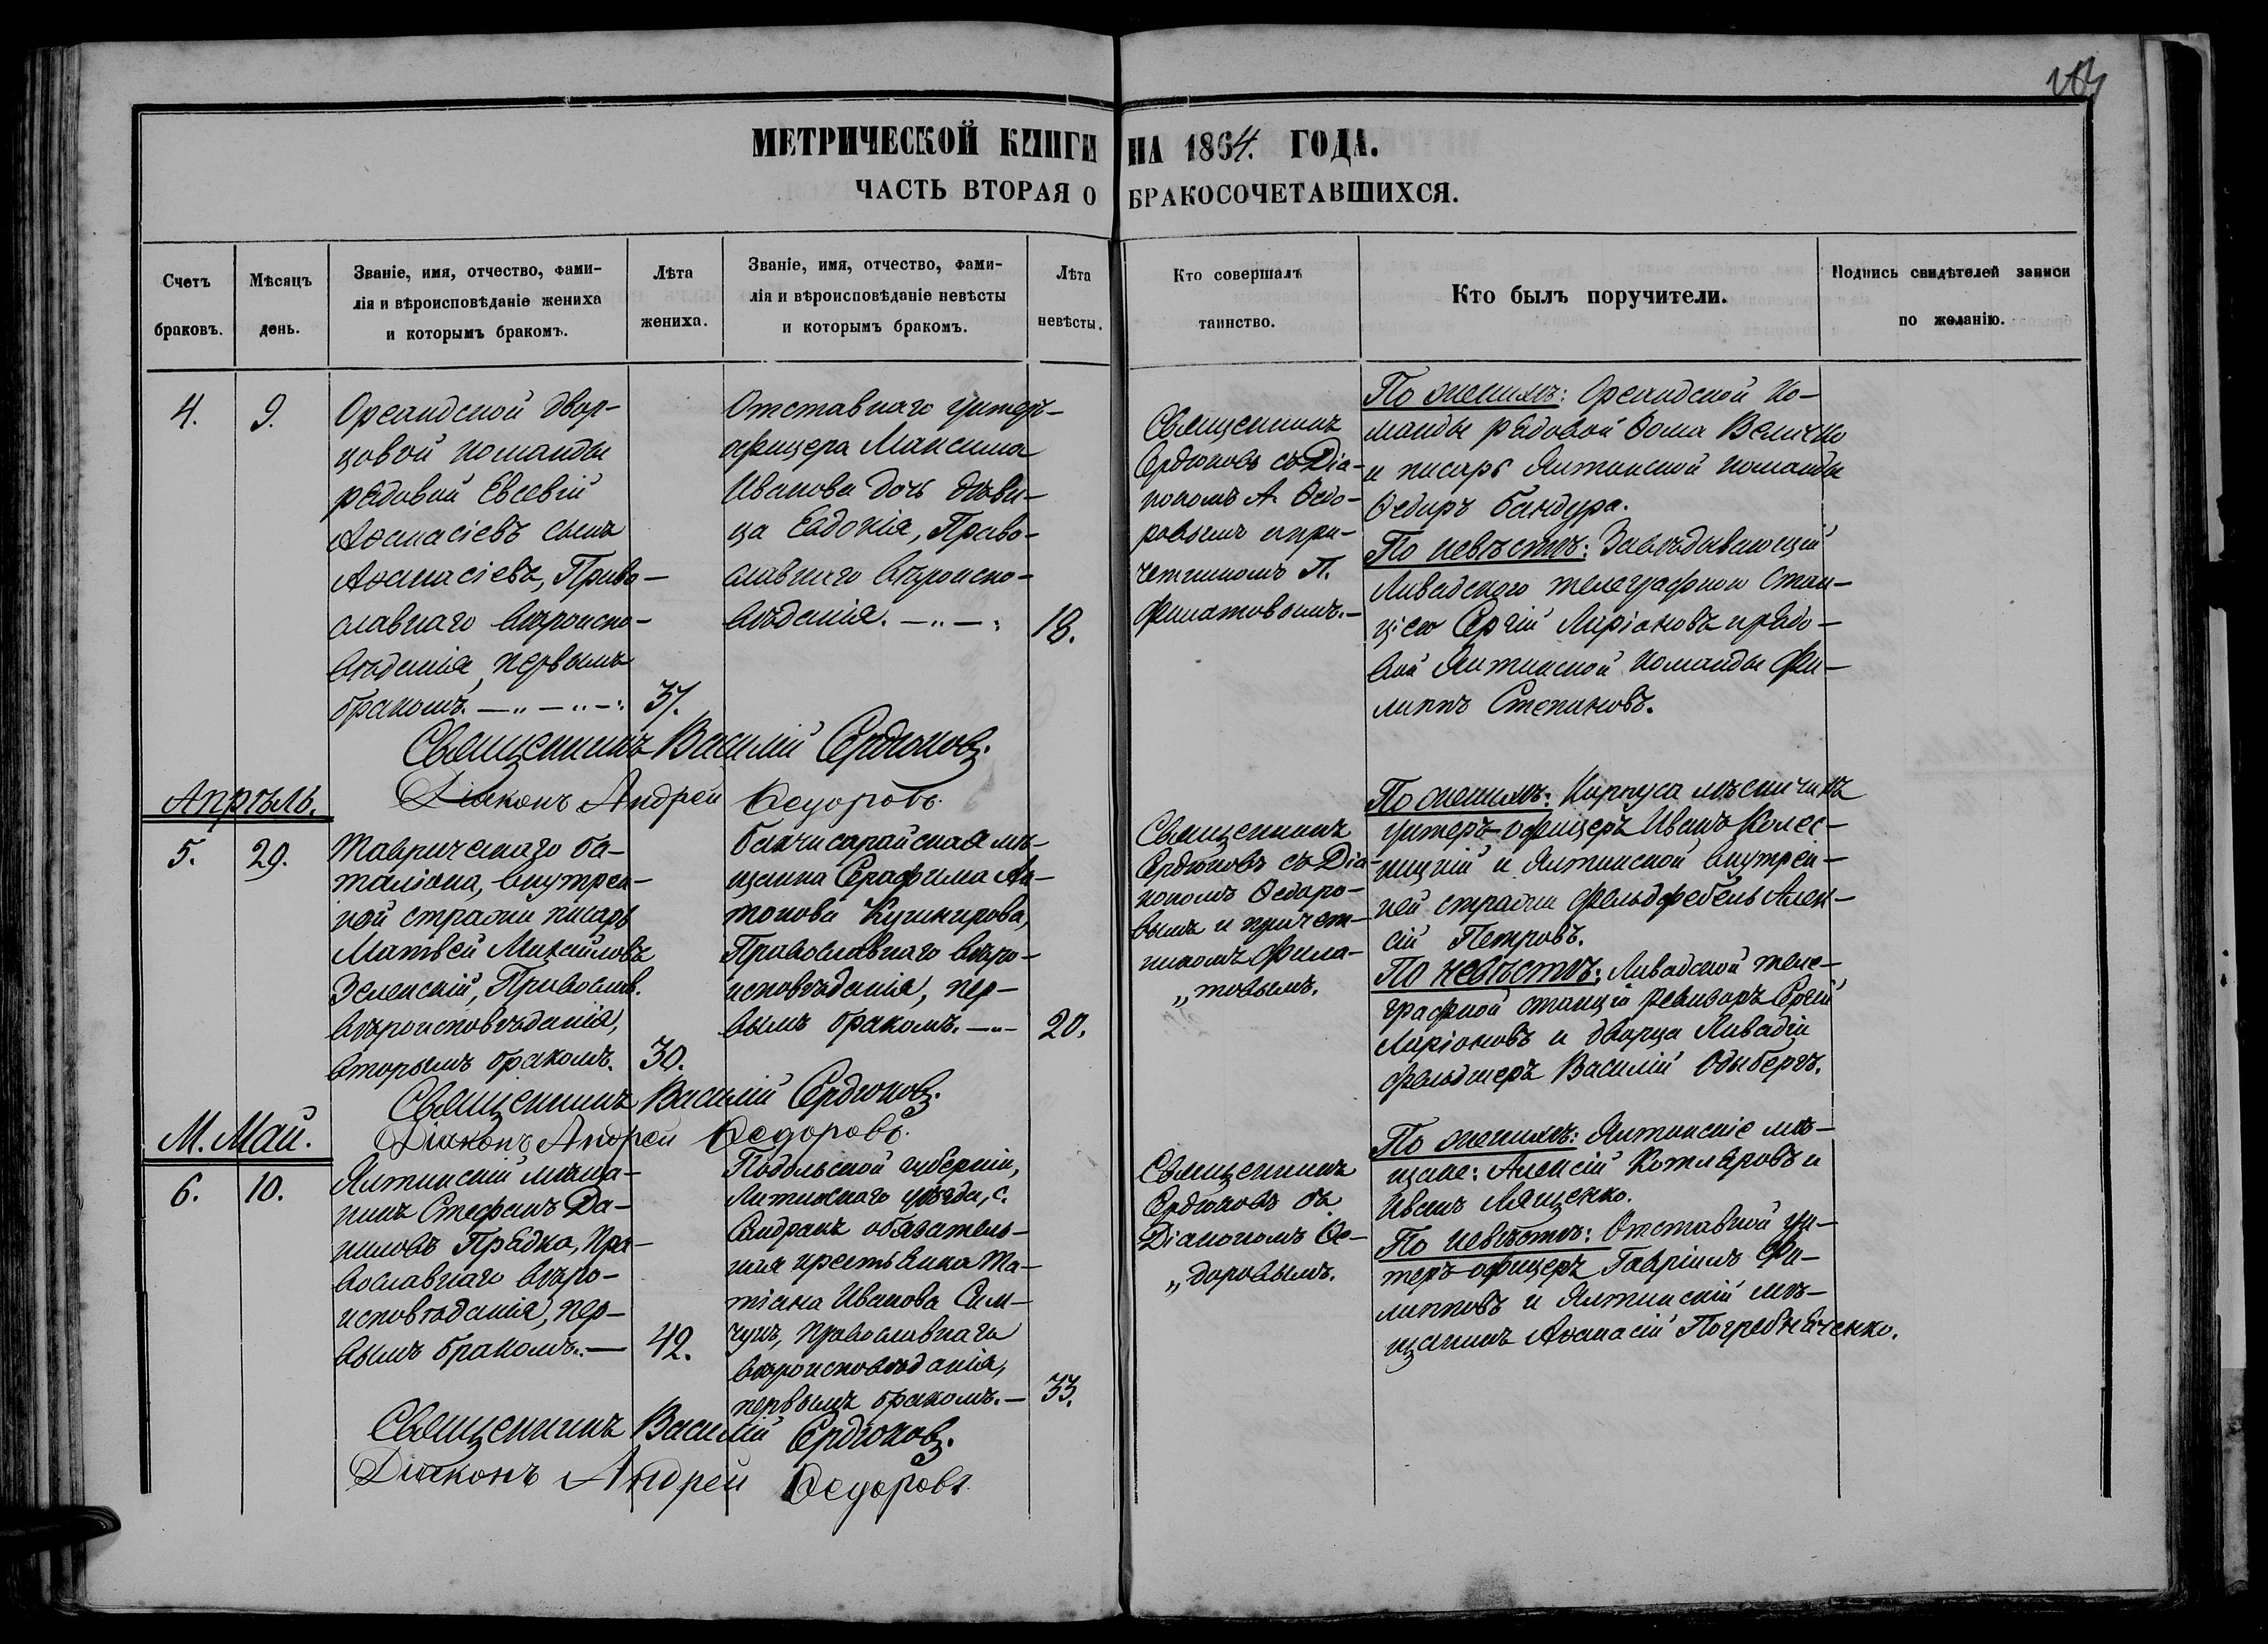 МЕТРИЧЕСКОЙ КНИГИ НА 1864. ГОДА.
ЧАСТЬ ВТОРАЯ О БРАКОСОЧЕТАВШИХСЯ.
Счетъ
браковъ.
Мѣсяцъ
день.
Званіе, имя, отчество, фами-
лія и вѣроисповѣданіе жениха
и которымъ бракомъ.
Лѣта
жениха.
Званіе, имя, отчество, фами-
лія и вѣроисповѣданіе невѣсты
и которымъ бракомъ.
Лѣта
невѣсты.
Кто совершалъ
таинство.
Кто былъ поручители.
Подпись свидѣтелей записи
по желанію.
4.
9.
Ореандской двор-
цовой команды
рядовой Евсевій
Аѳанасіевъ сынъ
Аѳанасіевъ, Право-
славнаго вѣроиспо-
вѣданія, первымъ
бракомъ. —„—„—:
37.
Отставнаго унтеръ-
офицера Максима
Иванова дочь дѣви-
ца Евдокія, Право-
славнаго вѣроиспо-
вѣданія. —„—:
18.
Священникъ
Сердюковъ съ Діа-
кономъ А. Ѳедо-
ровымъ и при-
четникомъ П.
Филатовымъ.—
По женихѣ: Ореандской ко-
манды рядовой Ѳома Величко
и писарь Ялтинской команды
Ѳедоръ Бандура.
По невѣстѣ: Завѣдывающій
Ливадскою телеграфною стан-
ціею Сергій Ларіоновъ и рядо-
вой Ялтинской команды Фи-
липпъ Степановъ.
Священникъ Василій Сердюковъ.
Діаконъ Андрей Ѳедоровъ.
Апрѣль.
5.
29.
Таврическаго ба-
таліона, внутрен-
ней стражи писарь
Матвей Михайловъ
Зеленскій, Православ.
вѣроисповѣданія,
вторымъ бракомъ.
30.
Бахчисарайская мѣ-
щанка Серафима Ан-
тонова Кушнирова,
Православнаго вѣро-
исповѣданія, пер-
вымъ бракомъ. —„—
20.
Священникъ
Сердюковъ съ Діа-
кономъ Ѳедоро-
вымъ и причет-
никомъ Фила-
„товымъ.
По женихѣ: Корпуса лѣсничихъ
унтеръ-офицеръ Иванъ Колес-
ницкій и Ялтинской внутрен-
ней стражи фельдфебель Алек-
сій Петровъ.
По невѣстѣ: Ливадской теле-
графной станціи ревизоръ Сергій
Ларіоновъ и дворца Ливадіи
фельдшеръ Василій Одыбергъ.
Священникъ Василій Сердюковъ.
Діаконъ Андрей Ѳедоровъ.
М. Май.
6.
10.
Ялтинскій мѣща-
нинъ Стефанъ Да-
ниловъ Прядка, Пра-
вославнаго вѣро-
исповѣданія, пер-
вымъ бракомъ.—
42.
Подольской губерніи,
Литинскаго уѣзда, с.
Сандракъ обязатель-
ная крестьянка Та-
тіана Иванова Сим-
чукъ, православнаго
вѣроисповѣданія,
первымъ бракомъ.—
33.
Священникъ
Сердюковъ съ
Діакономъ Ѳе-
„доровымъ.
По женихѣ: Ялтинскіе мѣ-
щане: Алексій Котляровъ и
Иванъ Лященко.
По невѣстѣ: Отставной ун-
теръ-офицеръ Гавріилъ Фи-
липповъ и Ялтинскій мѣ-
щанинъ Аѳанасій Погребняченко.
Священникъ Василій Сердюковъ.
Діаконъ Андрей Ѳедоровъ.